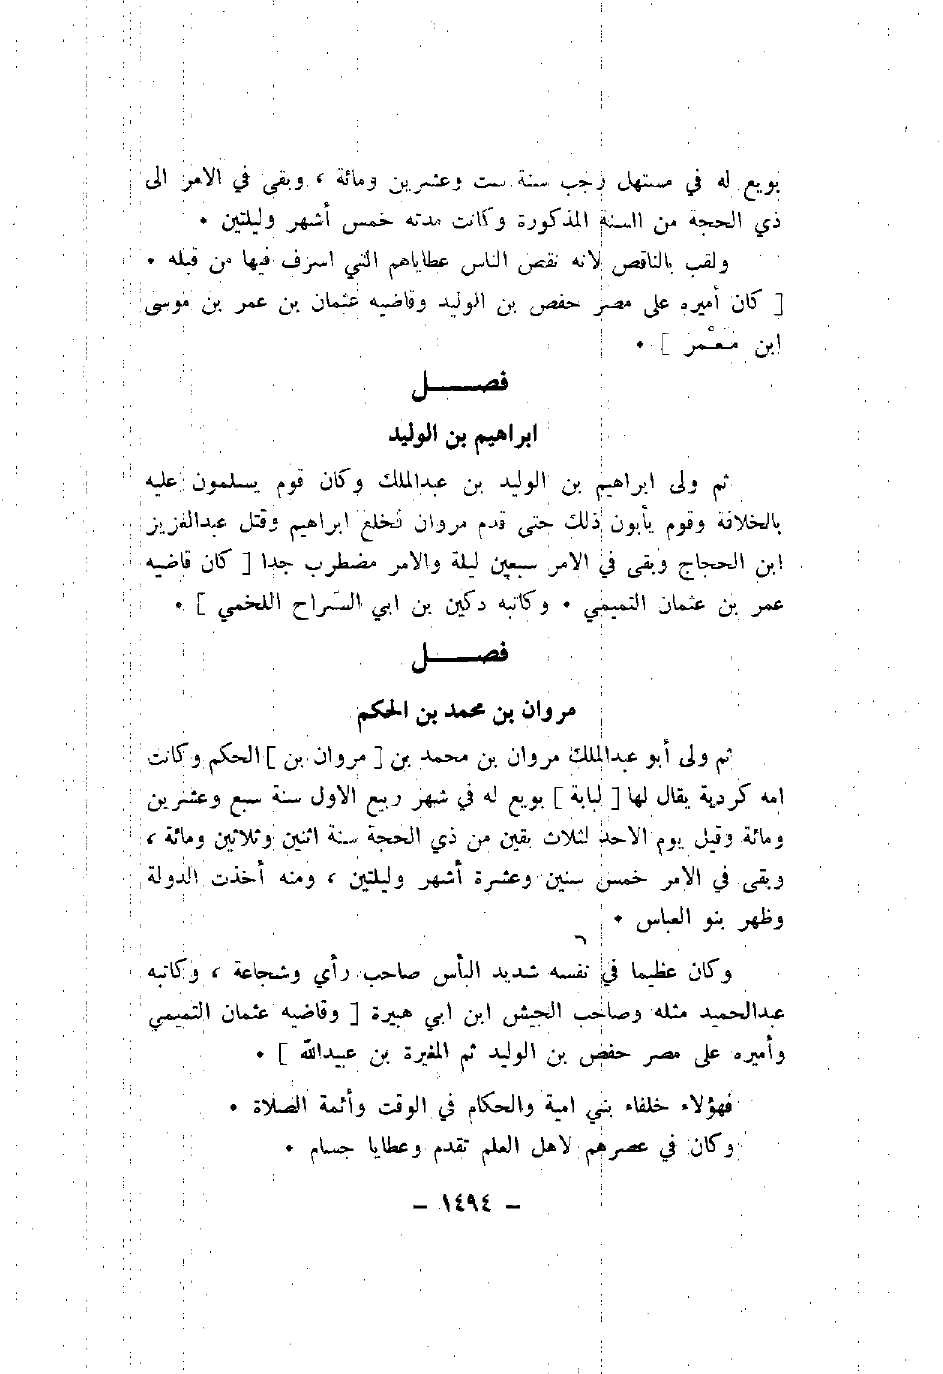 بويع له في مستهل رجب سنة ست وعشرين ومائة ، وبقى في الامر الى
ذي الحجة من السنة المذكورة وكانت مدته خمس أشهر وليلتين .
ولقب بالناقص لانه نقص الناس عطاياهم التي اسرف فيها من قبله .
[ كان أميره على مصر حفص بن الوليد وقاضيه عثمان بن عمر بن موسى
ابن معْمر ] .
فصــــل
ابراهيم بن الوليد
ثم ولى ابراهيم بن الوليد بن عبدالملك وكان قوم يسلمون عليه
بالخلافة وقوم يأبون ذلك حتى قدم مروان فخلع ابراهيم وقتل عبدالعزيز
ابن الحجاج وبقى في الامر سبعين ليلة والامر مضطرب جدا [ كان قاضيه
عمر بن عثمان التميمي . وكاتبه دكين بن ابي السراح اللخمي ] .
فصــــل
مروان بن محمد بن الحكم
ثم ولى أبو عبدالملك مروان بن محمد بن [ مروان بن ] الحكم وكانت
امه كردية يقال لها [ لبابة ] بويع له في شهر ربيع الاول سنة سبع وعشرين
ومائة وقيل يوم الاحد لثلاث بقين من ذي الحجة سنة اثنين وثلاثين ومائة ،
وبقى في الامر خمس سنين وعشرة أشهر وليلتين ، ومنه أخذت الدولة
وظهر بنو العباس .
وكان عظيما في نفسه شديد البأس صاحب رأي وشجاعة ، وكاتبه
عبدالحميد مثله وصاحب الجيش ابن ابي هبيرة [ وقاضيه عثمان التميمي
وأميره على مصر حفص بن الوليد ثم المغيرة بن عبيدالله ] .
فهؤلاء خلفاء بني امية والحكام في الوقت وأئمة الصلاة .
وكان في عصرهم لاهل العلم تقدم وعطايا جسام .
– ١٤٩٤ –